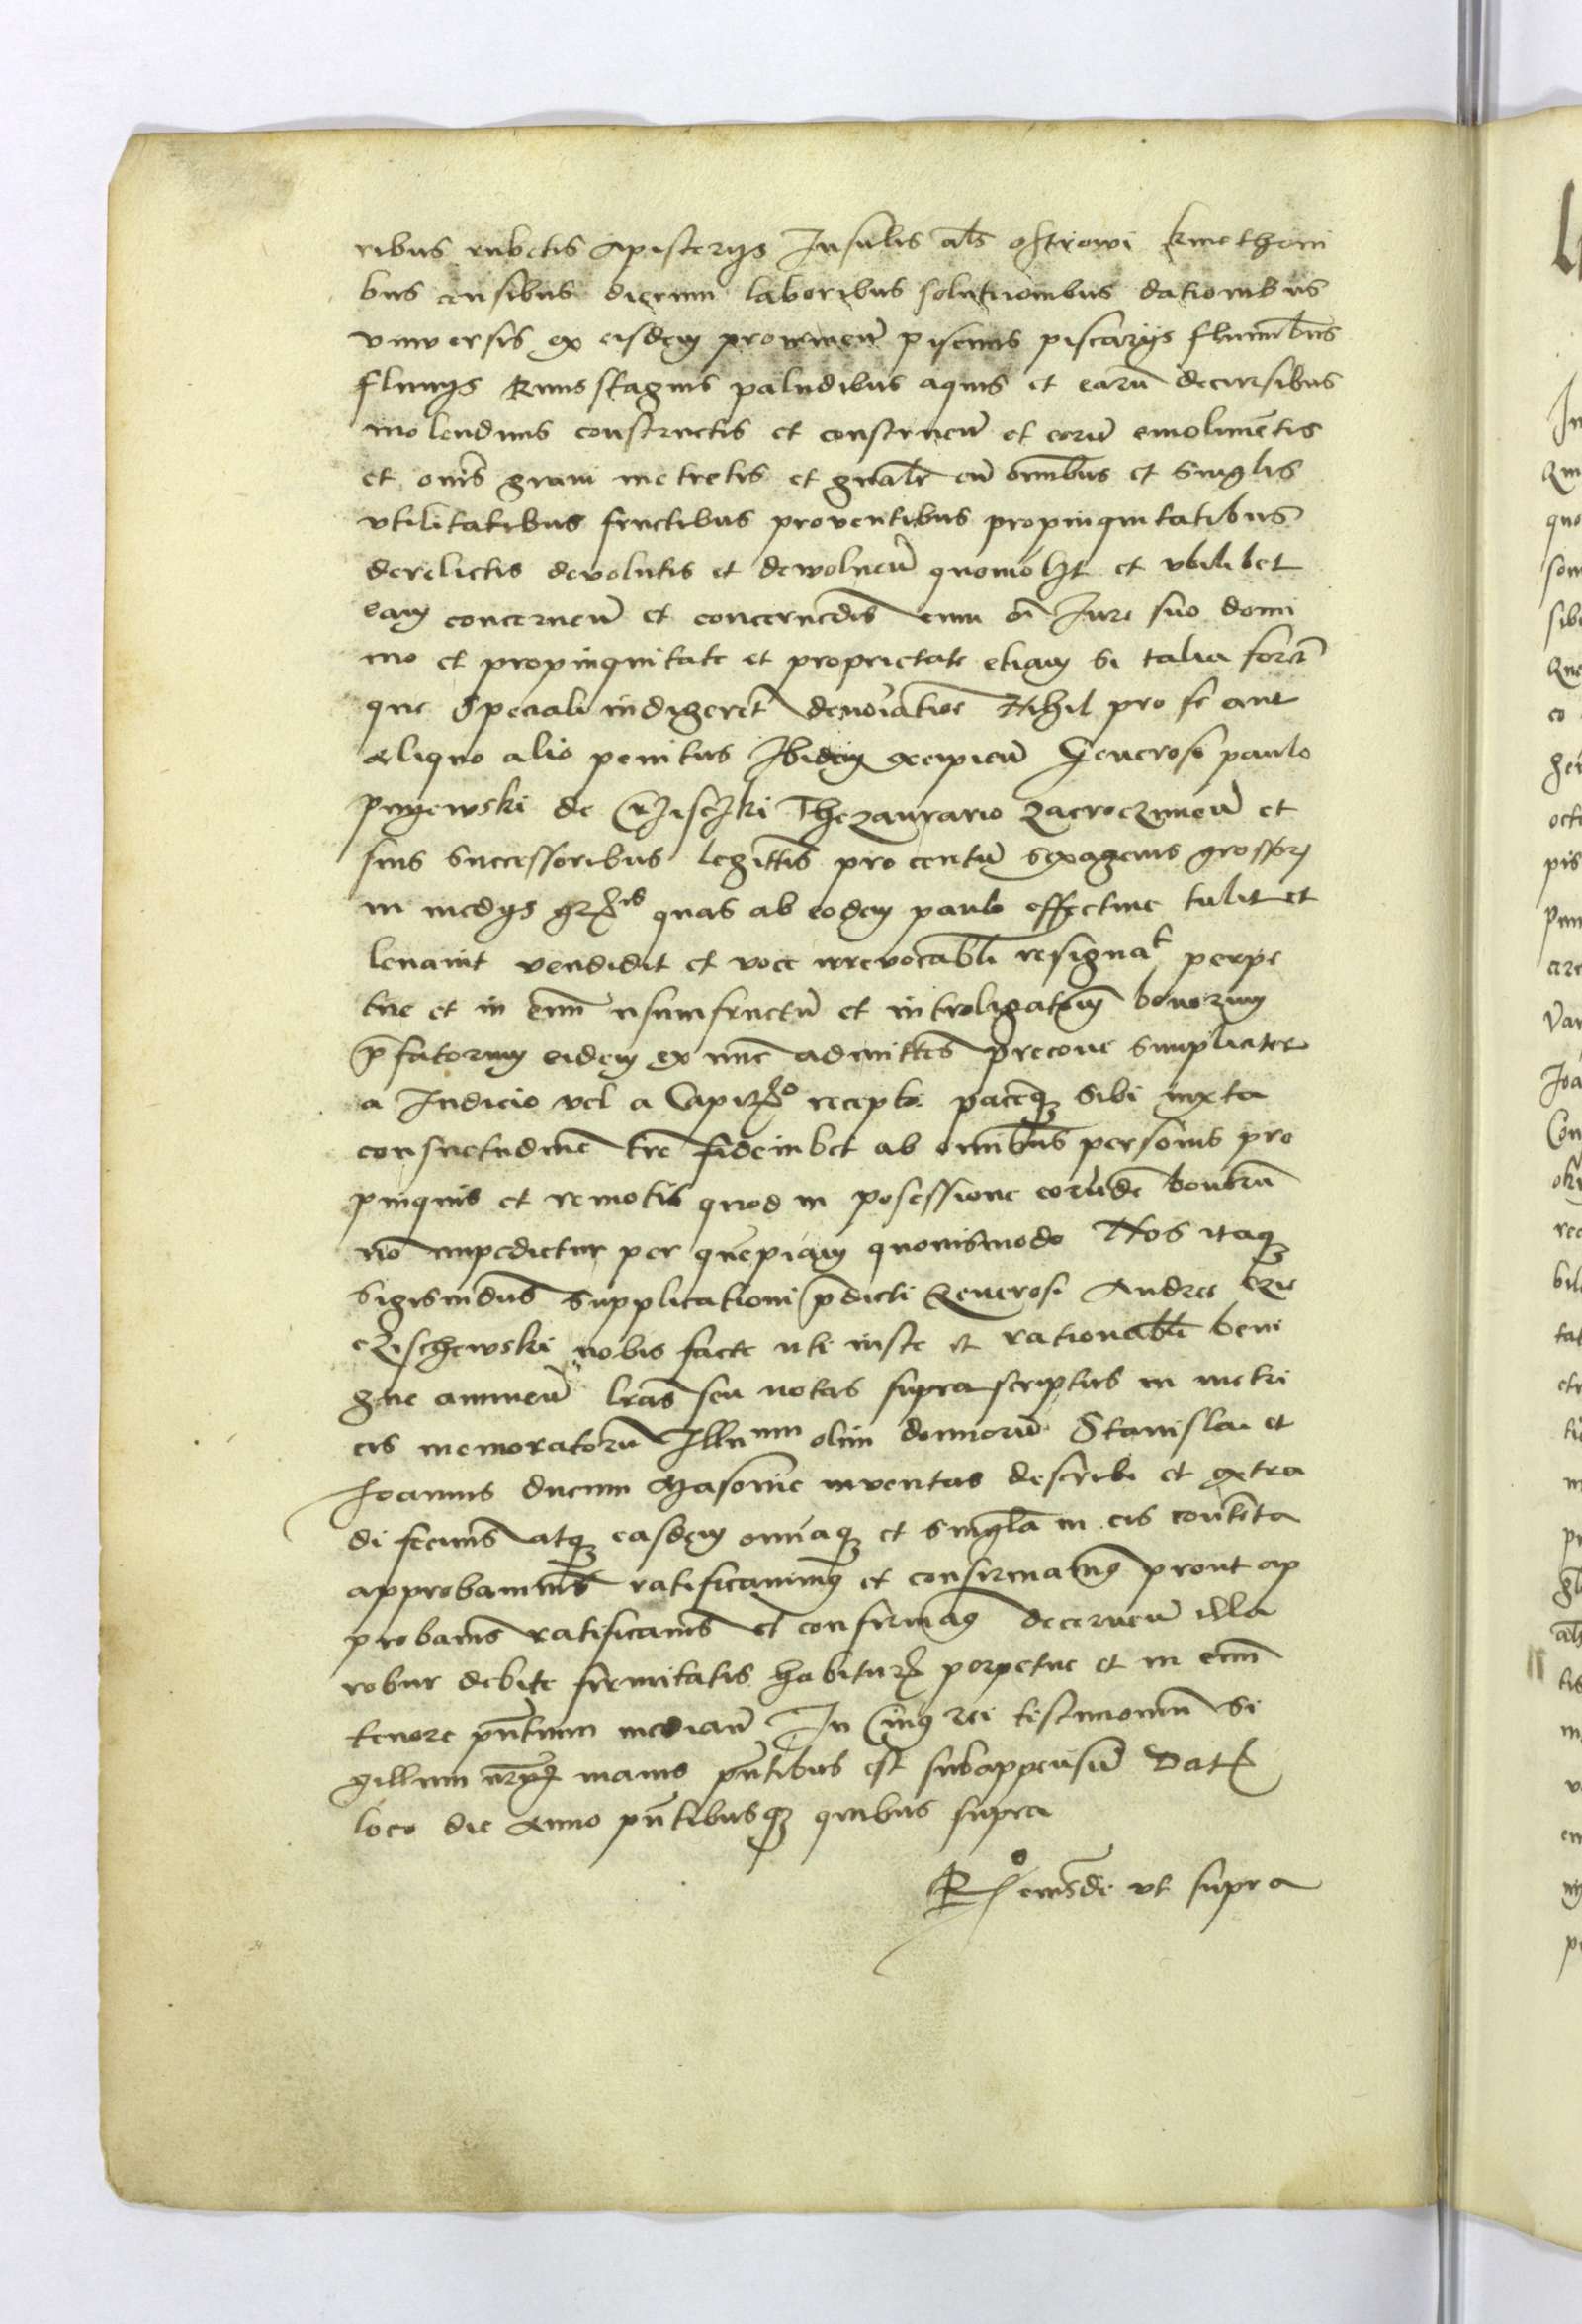 ribus rubetis apisterijs Insulis als ostrowi kmethoni
bus censibus dierum laboribus solutionibus dationibus
vniversis ex eisdem provenieñ piscinis piscarijs fluminibus
fluvijs Rivis stagnis paludibus aquis et earũ decursibus
molendinis constructis et construeñ et eorũ emolumẽtis
et oñis grani metretis et gñalr cũ omnibus et singlis
vtilitatibus fructibus proventibus propinquitatibus
derelictis devolutis et dewolueñ quomolzt et vbilibet
eam concerneñ et concernẽdis cum oĩ Iure suo domi
nio et propinquitate et proprietate etiam si talia forẽt
que Speciali indigerẽt denoĩatioe Nihil pro se aut
aliquo alio penitus Ibidem excipieñ Generoso paulo
de Thezaurario Zacroczimeñ et
suis successoribus legittis pro centũ sexagenis grossorz
in medijs quas ab eodem paulo effective tulit et
levavit vendidit et voce irrevocabli resignat perpe
tue et in evũ usumfructũ et introligatoem bonorum
p̃fatorum eidem ex nũc admittẽs precone simpliciter
a Iudicio vel a recepto pacẽqz sibi iuxta
consuetudinẽ tre fideiubet ab omnibus personis pro
pinquis et remotis quod in posessione eorũdẽ bonorũ
nõ impedietur per quẽpiam quovismodo Nos itaqz
Sigismũdus Supplicationi p̃dicti Generosi Andree
nobis facte uti iuste et rationabli beni
gne annueñ lras seu notas suprascriptas in metri
cis memoratorũ Illmum olim dominorũ Stanislai et
Ioannis ducum Masovie inventas describi et extra
di fecimus atqz easdem omniaqz et singla in eis contẽta
approbavimus ratificavimus et confirmavimus prout ap
probamus ratificamus et confirmamus decerneñ illa
robur debite firmitatis habitura perpetue et in evũ
tenore pñtium mediañ In Cuius rei testimoniũ Si
gillum nrm maius pñtibus est subappensũ Dat
loco die Anno pñtibusqz quibus supra
Ro eiusdẽ vt supra